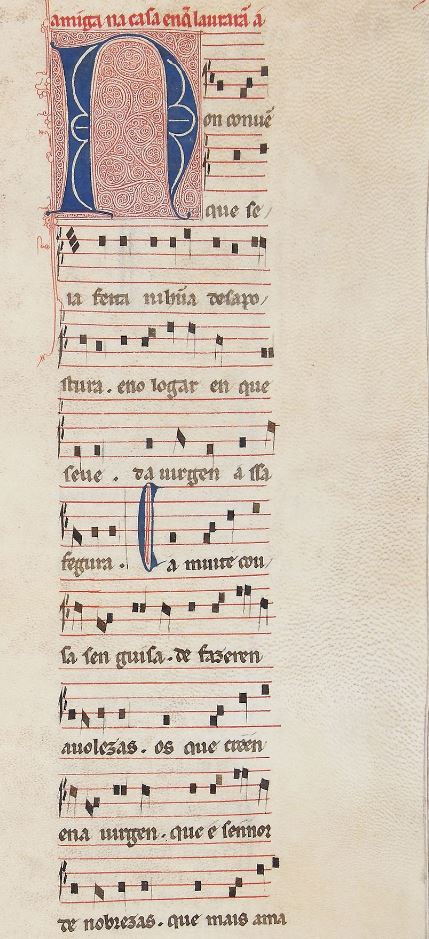 amiga na casa enq̃ laurarã a
Non conuẽ
que se
ia feita nihũa desapo
stura. eno logar en que
seue. da uirgen a ssa
fegura.
Ca muite cou
sa sen guisa. de fazeren
auolezas. os que creen
ena uirgen. que e sennor
de nobrezas. que mais ama